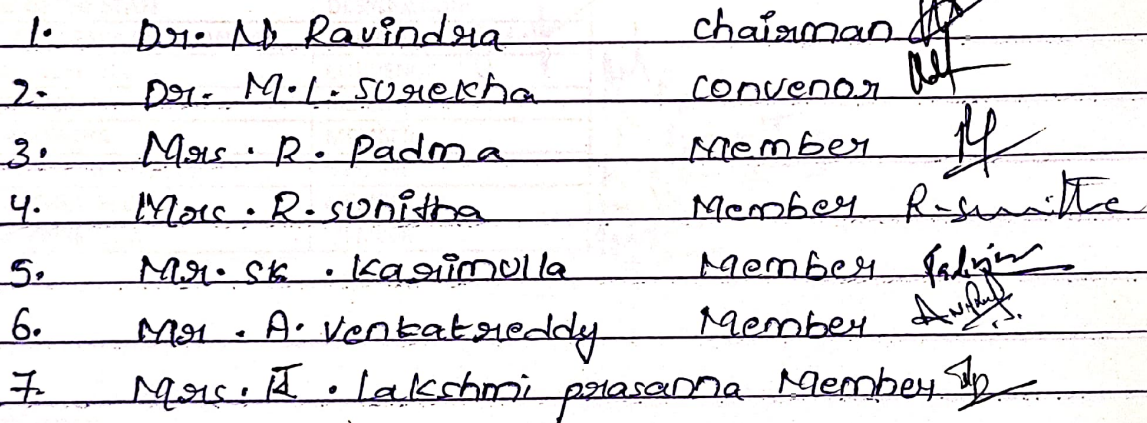 1. Dr. ND Ravindra Chairman
2. Dr. M.L. Surekha Convenor
3. Mrs. R. Padma Member
4. Mrs. R. Sunitha Member R-Sunitha
5. Mr. Sk. Karimulla Member
6. Mr. A. Venkatreddy Member
7. Mrs. . Lakshmi prasanna Member